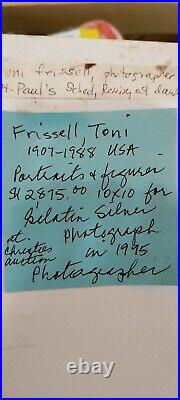 oni frissell, photographer
t. Paul's School, Rowing at dawn
Frissell, Toni
1907-1988 USA
Portrait & figures
$2875.00 10x10 for
Gelatin Silver
at. photograph
christies in 1995
auction
Photographer